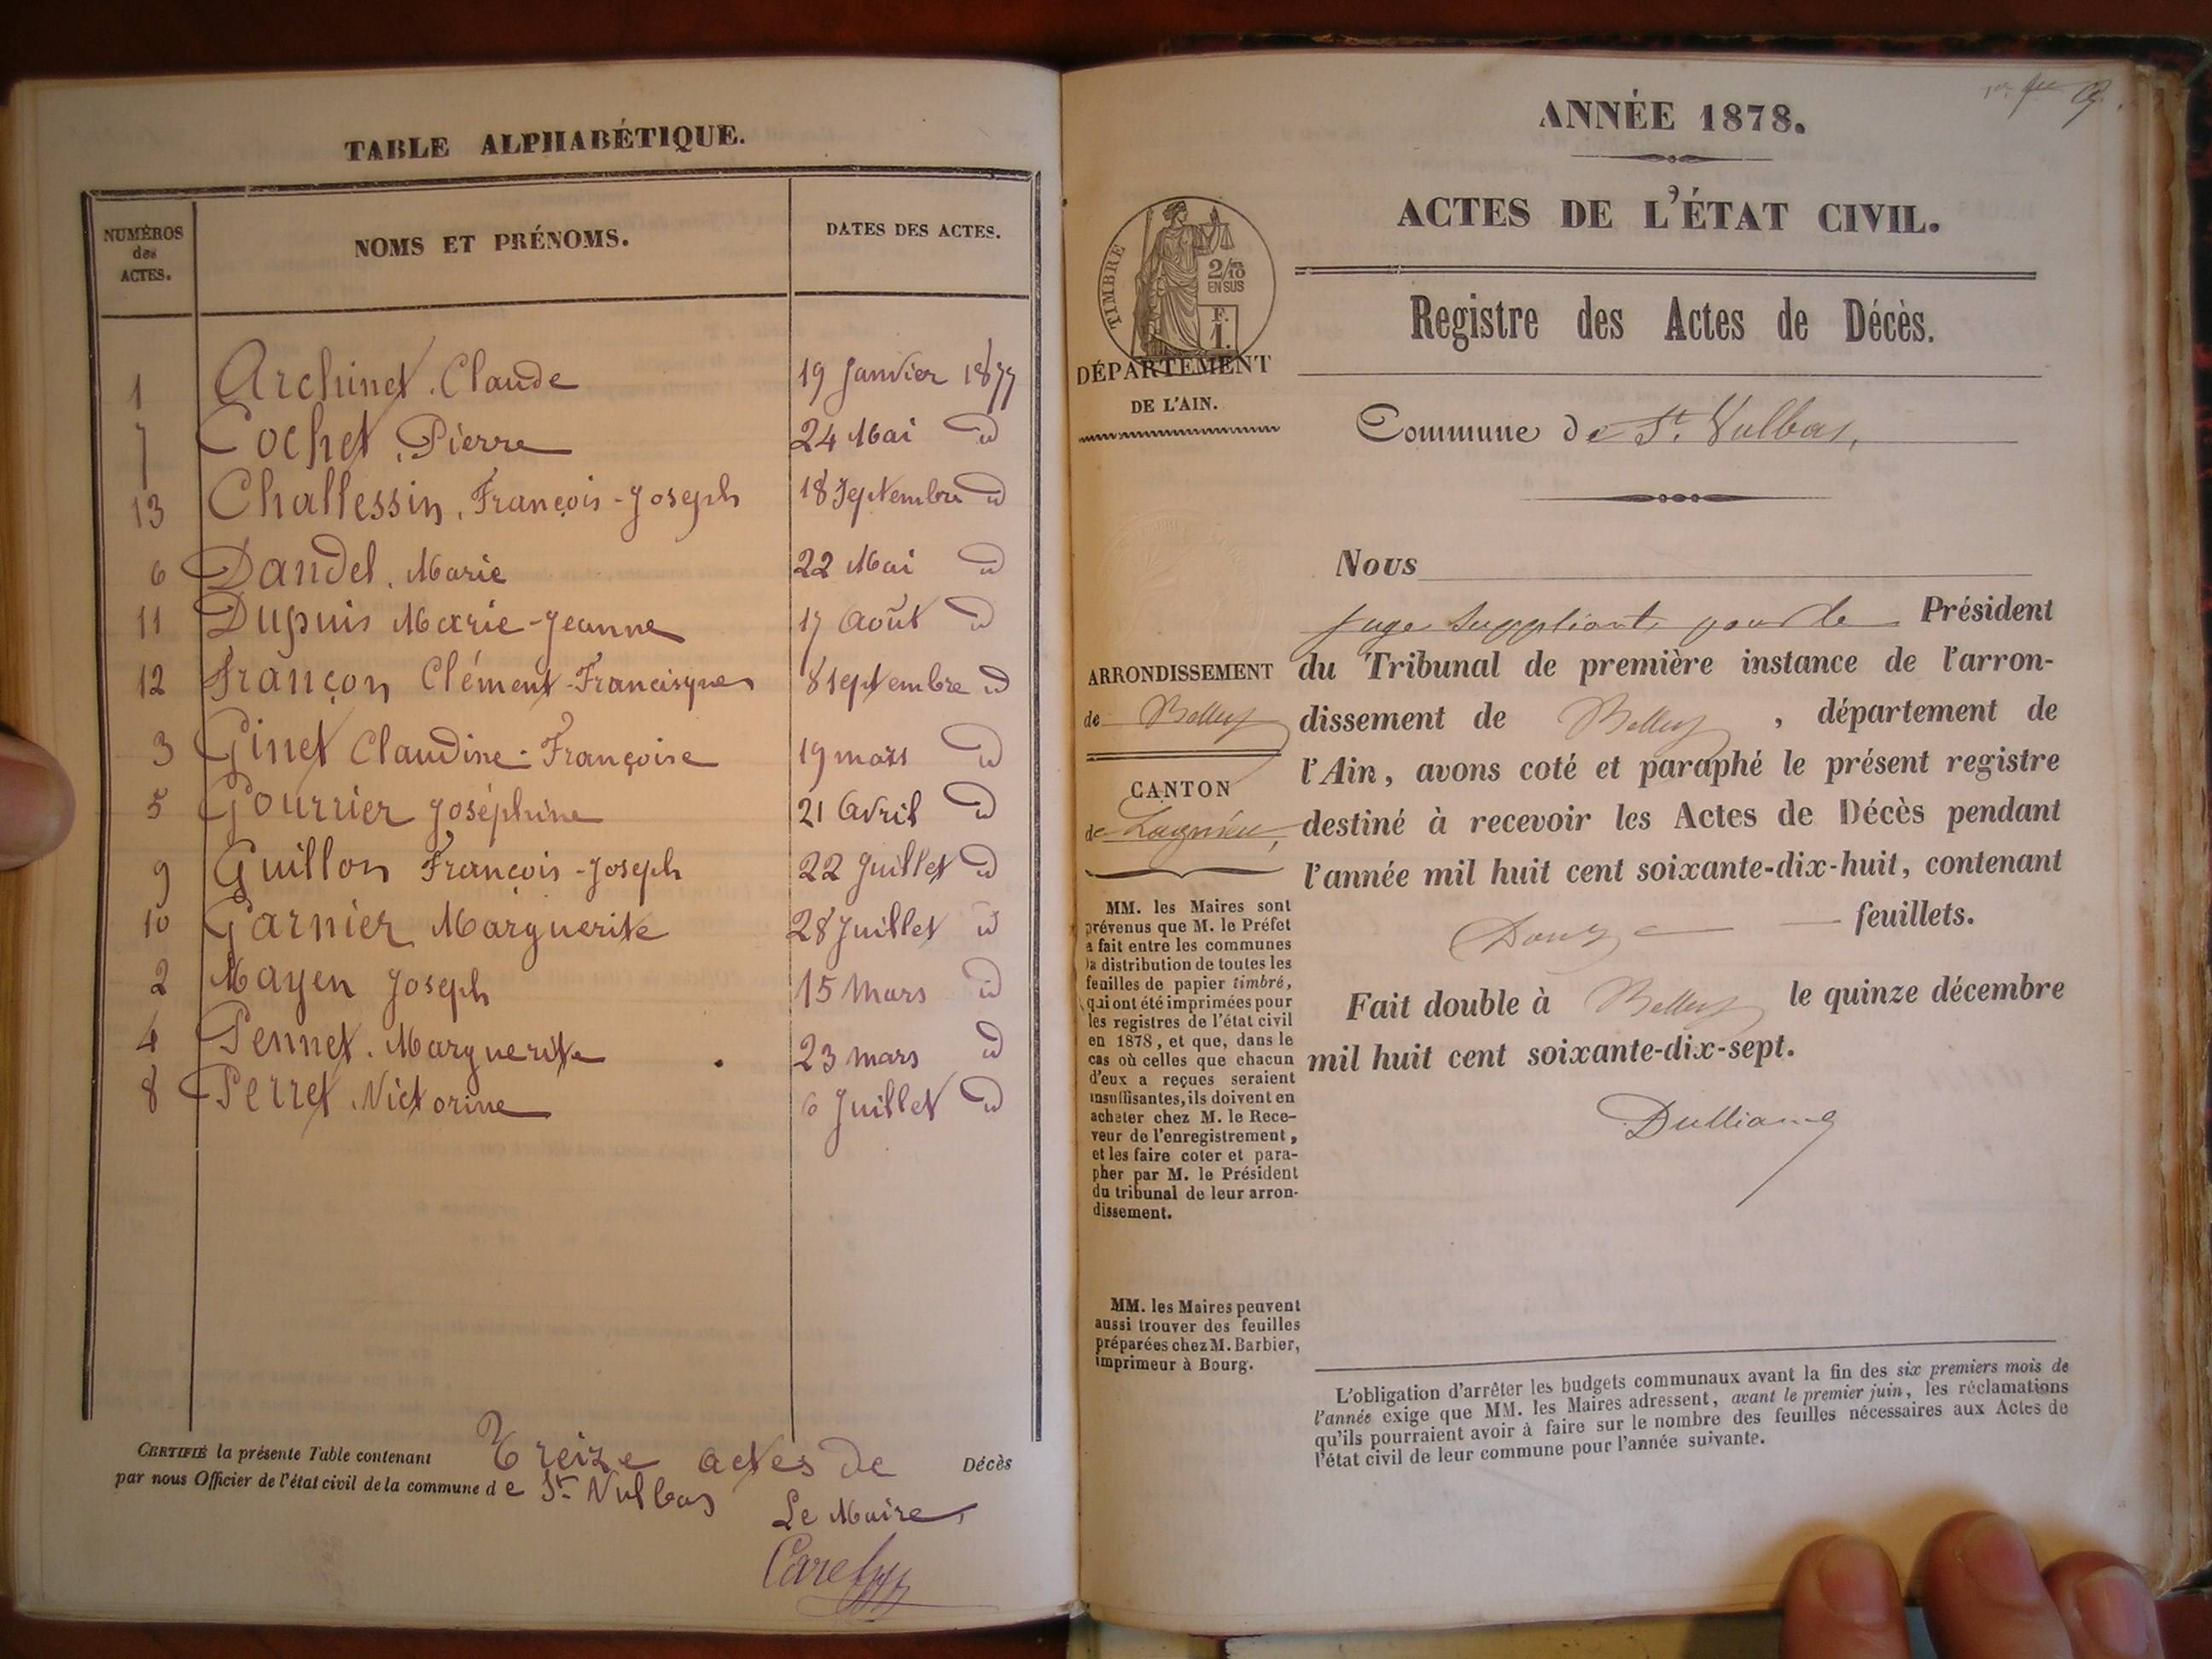 TABLE ALPHABÉTIQUE.
NUMÉROS des ACTES. NOMS ET PRÉNOMS. DATES DES ACTES.
1 Archinet. Claude 19 Janvier 1877
7 Cochet. Pierre 24 Mai id
13 Challessin, François-Joseph 18 Septembre id
6 Dandel. Marie 22 Mai id
11 Dupuis Marie-Jeanne 17 Août id
12 Françon Clément-Francisque 8 septembre id
3 Ginet Claudine-Françoise 19 mars id
5 Gourrier Joséphine 21 Avril id
9 Guillon François-Joseph 22 Juillet id
10 Garnier Marguerite 28 Juillet id
2 Mayen Joseph 15 Mars id
4 Pennet. Marguerite 23 mars id
8 Perret. Victorine 6 Juillet id
CERTIFIÉ la présente Table contenant Treize actes de Décès
par nous Officier de l'état civil de la commune de St Vulbas
Le Maire,
ANNÉE 1878.
ACTES DE L'ÉTAT CIVIL.
TIMBRE
2/10es
EN SUS
F.
1.
Registre des Actes de Décès.
DÉPARTEMENT
DE L'AIN.
Commune de St. Vulbas,
Nous
juge suppléant, pour le Président
du Tribunal de première instance de l'arron-
dissement de Belley, département de
l'Ain, avons coté et paraphé le présent registre
destiné à recevoir les Actes de Décès pendant
l'année mil huit cent soixante-dix-huit, contenant
Douze feuillets.
Fait double à Belley le quinze décembre
mil huit cent soixante-dix-sept.
ARRONDISSEMENT
de Belley
CANTON
de Lagnieu,
MM. les Maires sont
prévenus que M. le Préfet
a fait entre les communes
la distribution de toutes les
feuilles de papier timbré,
qui ont été imprimées pour
les registres de l'état civil
en 1878, et que, dans le
cas où celles que chacun
d'eux a reçues seraient
insuffisantes, ils doivent en
acheter chez M. le Rece-
veur de l'enregistrement,
et les faire coter et para-
pher par M. le Président
du tribunal de leur arron-
dissement.
MM. les Maires peuvent
aussi trouver des feuilles
préparées chez M. Barbier,
imprimeur à Bourg.
L'obligation d'arrêter les budgets communaux avant la fin des six premiers mois de
l'année exige que MM. les Maires adressent, avant le premier juin, les réclamations
qu'ils pourraient avoir à faire sur le nombre des feuilles nécessaires aux Actes de
l'état civil de leur commune pour l'année suivante.